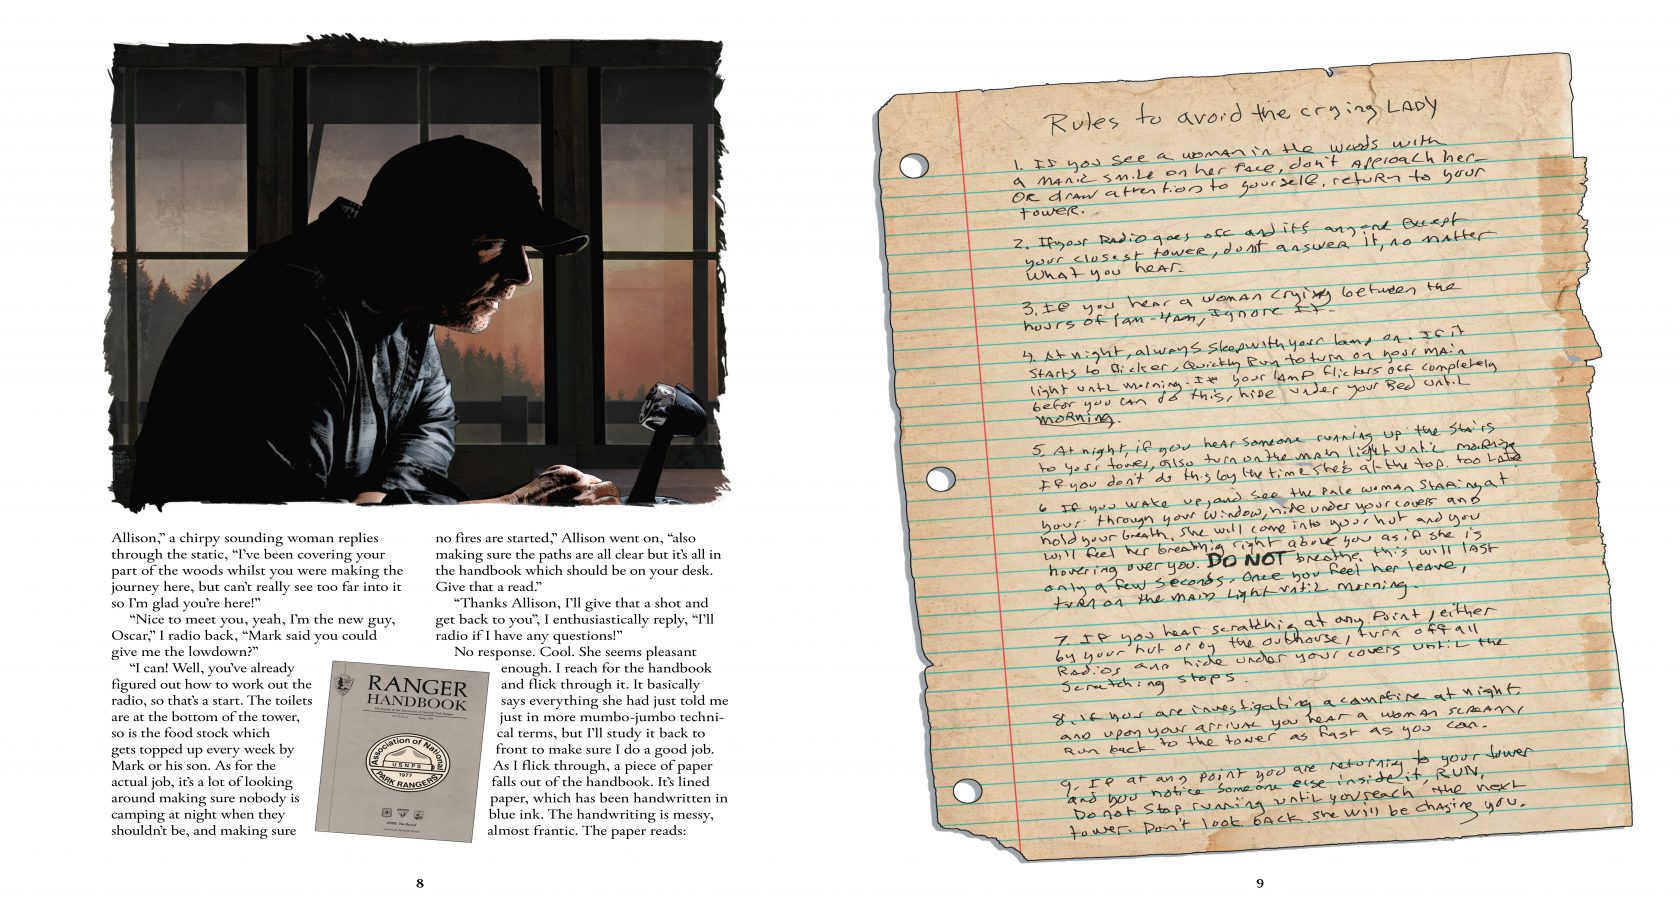 Allison,” a chirpy sounding woman replies
through the static, “I’ve been covering your
part of the woods whilst you were making the
journey here, but can’t really see too far into it
so I’m glad you’re here!”
“Nice to meet you, yeah, I’m the new guy,
Oscar,” I radio back, “Mark said you could
give me the lowdown?”
“I can! Well, you’ve already
figured out how to work out the
radio, so that’s a start. The toilets
are at the bottom of the tower,
so is the food stock which
gets topped up every week by
Mark or his son. As for the
actual job, it’s a lot of looking
around making sure nobody is
camping at night when they
shouldn’t be, and making sure
no fires are started,” Allison went on, “also
making sure the paths are all clear but it’s all in
the handbook which should be on your desk.
Give that a read.”
“Thanks Allison, I’ll give that a shot and
get back to you”, I enthusiastically reply, “I’ll
radio if I have any questions!”
No response. Cool. She seems pleasant
enough. I reach for the handbook
and flick through it. It basically
says everything she had just told me
just in more mumbo-jumbo techni-
cal terms, but I’ll study it back to
front to make sure I do a good job.
As I flick through, a piece of paper
falls out of the handbook. It’s lined
paper, which has been handwritten in
blue ink. The handwriting is messy,
almost frantic. The paper reads:
RANGER
HANDBOOK
Association of National
USNPS
1977
PARK RANGERS
8
Rules to avoid the crying LADY
1. If you see a woman in the woods with
a manic smile on her face, don't approach her
OR draw attention to yourself, return to your
tower.
2. If your Radio goes off and it's anyone except
your closest tower, don't answer it, no matter
what you hear.
3. If you hear a woman crying between the
hours of 1am-4am, Ignore It.
4. At night, always sleep with your lamp on. If it
starts to flicker, quickly Run to turn on your main
light until morning. If your lamp flickers off completely
befor you can do this, hide under your Bed until
morning.
5. At night, if you hear someone running up the stairs
to your tower, also turn on the main light until morning
If you don't do this by the time she's at the top. too Late
6. If you wake up, and see the Pale woman staring at
your through your window, hide under your covers and
hold your breath. She will come into your hut and you
will feel her breathing right above you as if she is
hovering over you. DO NOT breathe. this will last
only a few seconds. Once you feel her leave,
turn on the main light until morning.
7. If you hear scratching at any point, either
by your hut or by the outhouse, turn off all
Radios and hide under your covers until the
scratching stops.
8. If you are investigating a campfire at night
and upon your arrival you hear a woman scream,
Run back to the tower as fast as you can.
9. If at any point you are returning to your tower
and you notice someone else inside it, RUN,
Do not stop running until you reach the next
tower. Don't look back. she will be chasing you.
9